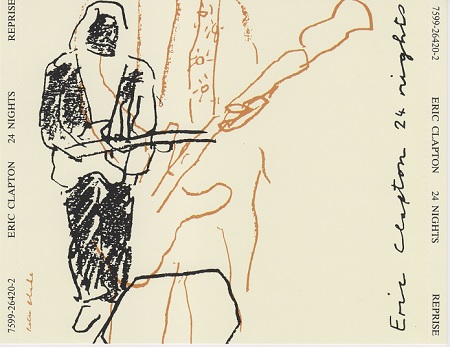 7599-26420-2 ERIC CLAPTON 24 NIGHTS REPRISE
Eric Clapton 24 nights
7599-26420-2 ERIC CLAPTON 24 NIGHTS REPRISE